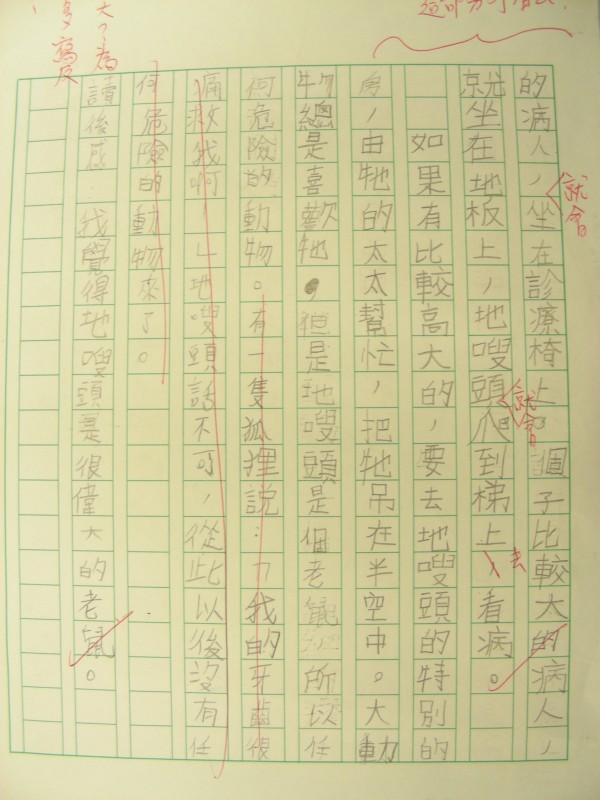 的病人，坐在診療椅上。個子比較大的病人，
就坐在地板上，地嗖頭爬到梯上，看病。
如果有比較高大的，要去地嗖頭的特別的
房，由牠的太太幫忙，把牠吊在半空中。大動
物總是喜歡牠。但是地嗖頭是個老鼠 所以任
何危險的動物。有一隻狐狸說：「我的牙齒很
痛救我啊！」地嗖頭話不可，從此以後沒有任
何危險的動物來了。
讀後感：我覺得地嗖頭是很偉大的老鼠。
就會
就會
去
多寫